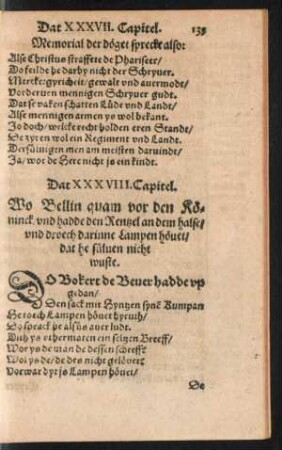 Dat XXXVII. Capitel. 139
Memorial der döget spreckt also:
Alse Christus straffete de Phariseer/
Do feilde he darby nicht der Schryuer.
Mercke: gyricheit/gewalt vnd auermodt/
Vorderuen mennigen Schryuer gudt.
Dat se vaken schatten Lüde vnd Landt/
Alse mennigen armen ys wol bekant.
Jo doch/ welcke recht holden eren Standt/
Se zyren wol ein Regiment vnd Landt.
Der süluigen men am meisten daruindt/
Ja/ wor de Here nicht js ein kindt.
Dat XXXVIII. Capitel.
Wo Bellin quam vor den Kö-
ninck vnd hadde den Rentzel an dem halse/
vnd droech darinne Lampen höuet/
dat he süluen nicht
wuste.
DO Bokert de Beuer hadde vp
gedan/
Den sack mit Hyntzen syne Kumpan
He toech Lampen höuet hyruth/
So sprack he alsüs auer ludt.
Dith ys vthermaten ein seltzen Breeff/
Wor ys de man de dessen schreff?
Wol ys de/ de des nicht gelöuet?
Vorwar dyt js Lampen höuet/
De